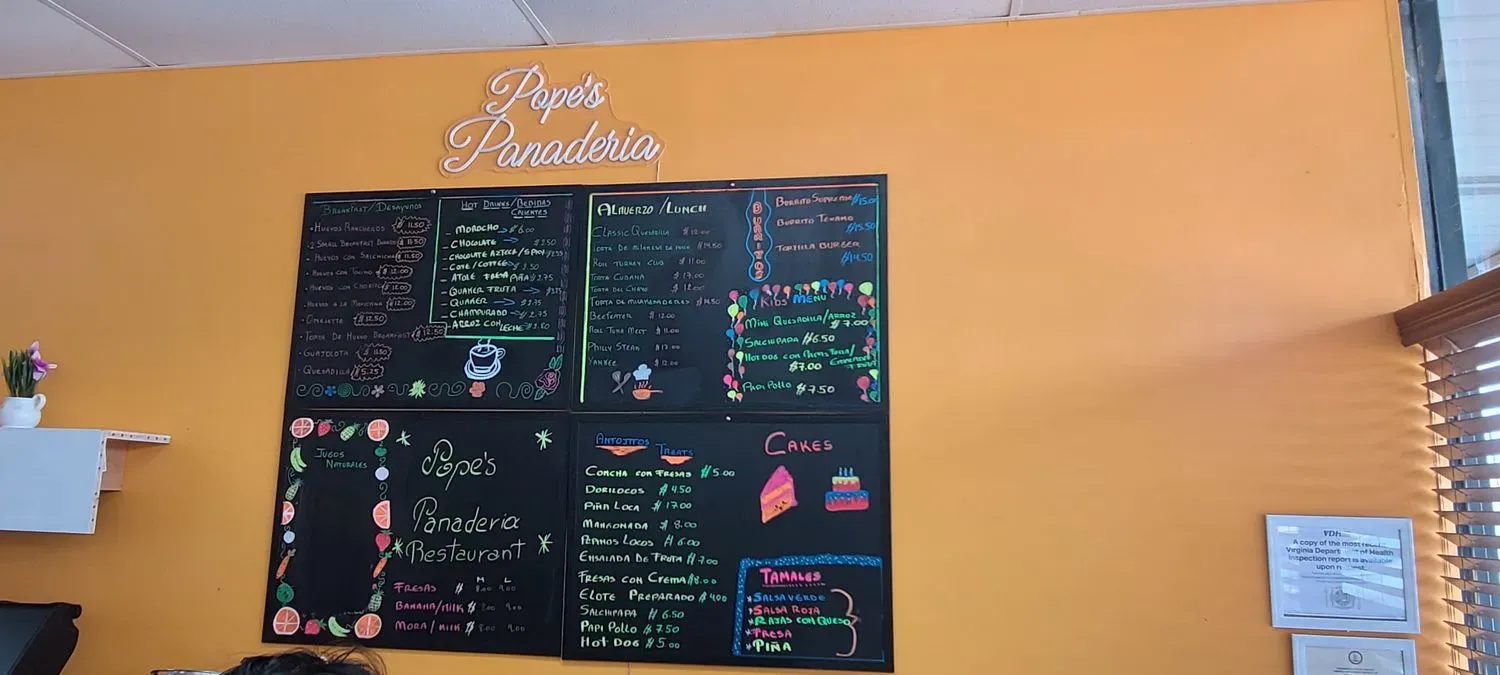 Pope's
Panaderia
Breakfast/Desayunos
Huevos Rancheros $11.50
2 Small Breakfast $11.50
Huevos con Salchicha $11.50
Huevos con Tocino $12.00
Huevos con Chorizo $12.00
Huevos a la Mexicana $12.00
Omelette $12.50
Torta de Huevo Breakfast $12.50
Guajolota $11.50
Quesadilla $5.25
Hot Drinks/Bebidas
Calientes
Morocho → $6.00
Chocolate → $2.50
Chocolate Azteca/
Cafe/Coffee $2.50
Atole Fresa Piña $2.75
Quaker Fruta → $2.75
Quaker → $2.75
Champurado → $2.75
Arroz con Leche $2.80
Almuerzo/Lunch
Classic Quesadilla $12.00
Torta de Milanesa de $14.50
Roll Turkey Club $11.00
Torta Cubana $17.00
Torta del Chavo $12.00
Torta de Milanesa de Res $14.50
Beefeater $12.00
Roll Tuna Melt $11.00
Philly Steak $17.00
Yankee $12.00
Burritos
Burrito Supreme $15.00
Burrito Texano
$15.50
Tortilla Burger
$14.50
Kids Menu
Mini Quesadilla/Arroz
$7.00
Salchipapa $6.50
Hot Dog con Papas
$7.00
Papi Pollo $7.50
Jugos
Naturales
Pope's
Panaderia
Restaurant
M L
Fresas $ 8.00 9.00
Banana/Milk $ 8.00 9.00
Mora/Milk $ 8.00 9.00
Antojitos
Treats
Concha con Fresas $5.00
Dorilocos $4.50
Piña Loca $17.00
Mangonada $8.00
Pepinos Locos $6.00
Ensalada de Fruta $7.00
Fresas con Crema $8.00
Elote Preparado $4.00
Salchipapa $6.50
Papi Pollo $7.50
Hot Dog $5.00
Cakes
Tamales
*Salsa Verde
*Salsa Roja
*Rajas con Queso
*Fresa
*Piña
VDH
A copy of the most recent
Virginia Department of Health
inspection report is available
upon request